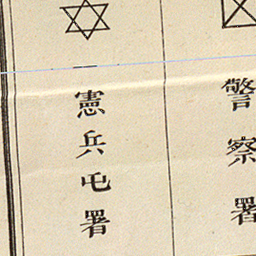 警察署
憲兵屯署